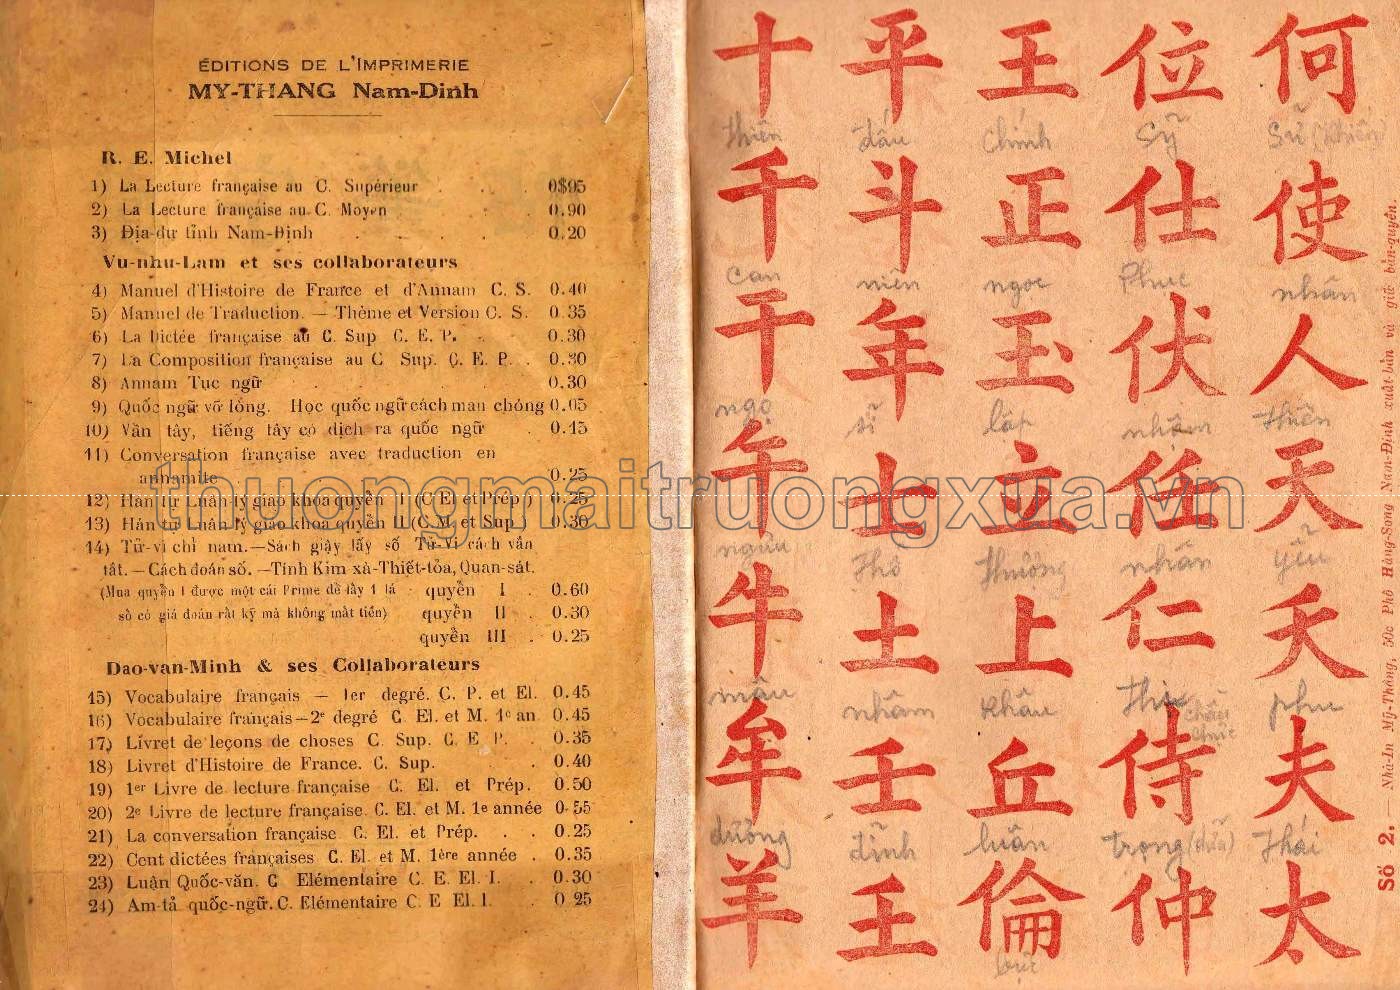 ÉDITIONS DE L'IMPRIMERIE
MY-THANG Nam-Dinh
R. E. Michel
1) La Lecture française au C. Supérieur . . . 0$95
2) La Lecture française au C. Moyen . . 0.90
3) Địa-dư tỉnh Nam-Định . . . . 0.20
Vu-nhu-Lam et ses collaborateurs
4) Manuel d'Histoire de France et d'Annam C. S. 0.40
5) Manuel de Traduction. — Thème et Version C. S. 0.35
6) La Dictée française au C. Sup C. E. P. . . 0.30
7) La Composition française au C Sup. C. E. P. . 0.30
8) Annam Tục ngữ . . . . 0.30
9) Quốc ngữ vỡ lòng. Học quốc ngữ cách mau chóng 0.05
10) Vần tây, tiếng tây có dịch ra quốc ngữ . 0.15
11) Conversation française avec traduction en
annamite 0.25
12) Hán tự Luân-lý giáo khoa quyển I (C El et Prép.) 0.25
13) Hán tự Luân lý giáo khoa quyển II (C. M. et Sup.) 0.30
14) Tử-vi chỉ nam.—Sách giậy lấy số Tử-Vi cách vắn
tắt.—Cách đoán số.—Tính Kim xà-Thiết-tỏa, Quan-sát.
(Mua quyển I được một cái Prime để lấy 1 lá quyển I . 0.60
số có giá đoán rất kỹ mà không mất tiền) quyển II . 0.30
quyển III . 0.25
Dao-van-Minh & ses Collaborateurs
15) Vocabulaire français — 1er degré. C. P. et El. 0.45
16) Vocabulaire français—2e degré C. El. et M. 1e an 0.45
17) Livret de leçons de choses C. Sup. C. E P. . 0.35
18) Livret d'Histoire de France. C. Sup. . . 0.40
19) 1er Livre de lecture française C. El. et Prép. 0.50
20) 2e Livre de lecture française. C. El. et M. 1e année 0.55
21) La conversation française C. El. et Prép. . . 0.25
22) Cent dictées françaises C. El. et M. 1ère année . 0.35
23) Luận Quốc-văn. C Elémentaire C. E. El. I. . 0.30
24) Am-tả quốc-ngữ. C. Elémentaire C. E El. I. . 0 25
十 平 王 位 何
thiên đấu chính Sỹ Sứ (khiến)
千 斗 正 仕 使
can niên ngọc Phục nhân
干 年 玉 伏 人
ngọ sĩ lập nhậm thiên
午 士 立 任 天
ngưu thổ thượng nhân yểu
牛 土 上 仁 夭
mâu nhâm khâu thị chầu chực phu
牟 壬 丘 侍 夫
dương đĩnh luân trọng (giữa) thái
羊 𡈼 倫 仲 太
Số 2. — Nhà-In Mỹ-Thắng, 50c Phố Hàng-Song Nam-Định xuất-bản và giữ bản-quyền.
thuongmaitruongxua.vn